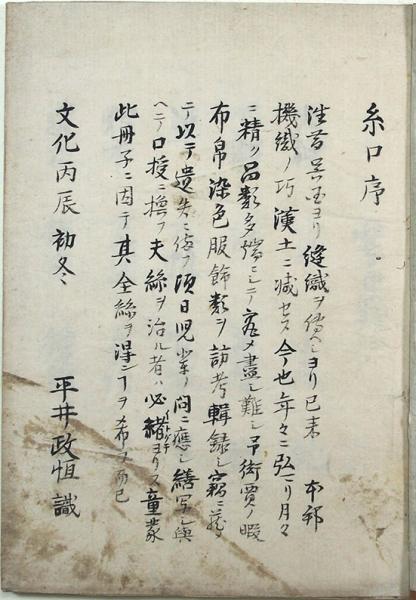 糸口序
往昔呉国ヨリ縫織ヲ傳ヘシヨリ已来 本邦
機織ノ巧漢土ニ减セス今也年々ニ弘リ月々
ニ精ク品数多端ニシテ 盡シ難シ予衒賣ノ暇
布帛染色服飾数ヲ訪考輯録シ竊ニ蔵
テ以テ遺失ニ俻フ頃日児輩ノ問ニ應シ繕写シ與
ヘテ口授ニ換フ夫絲ヲ治ル者ハ必緒ヨリス童蒙
此冊子ニ因テ其全絲ヲ淂ンヿヲ希フ而已
文化丙辰初冬
平井政恒識